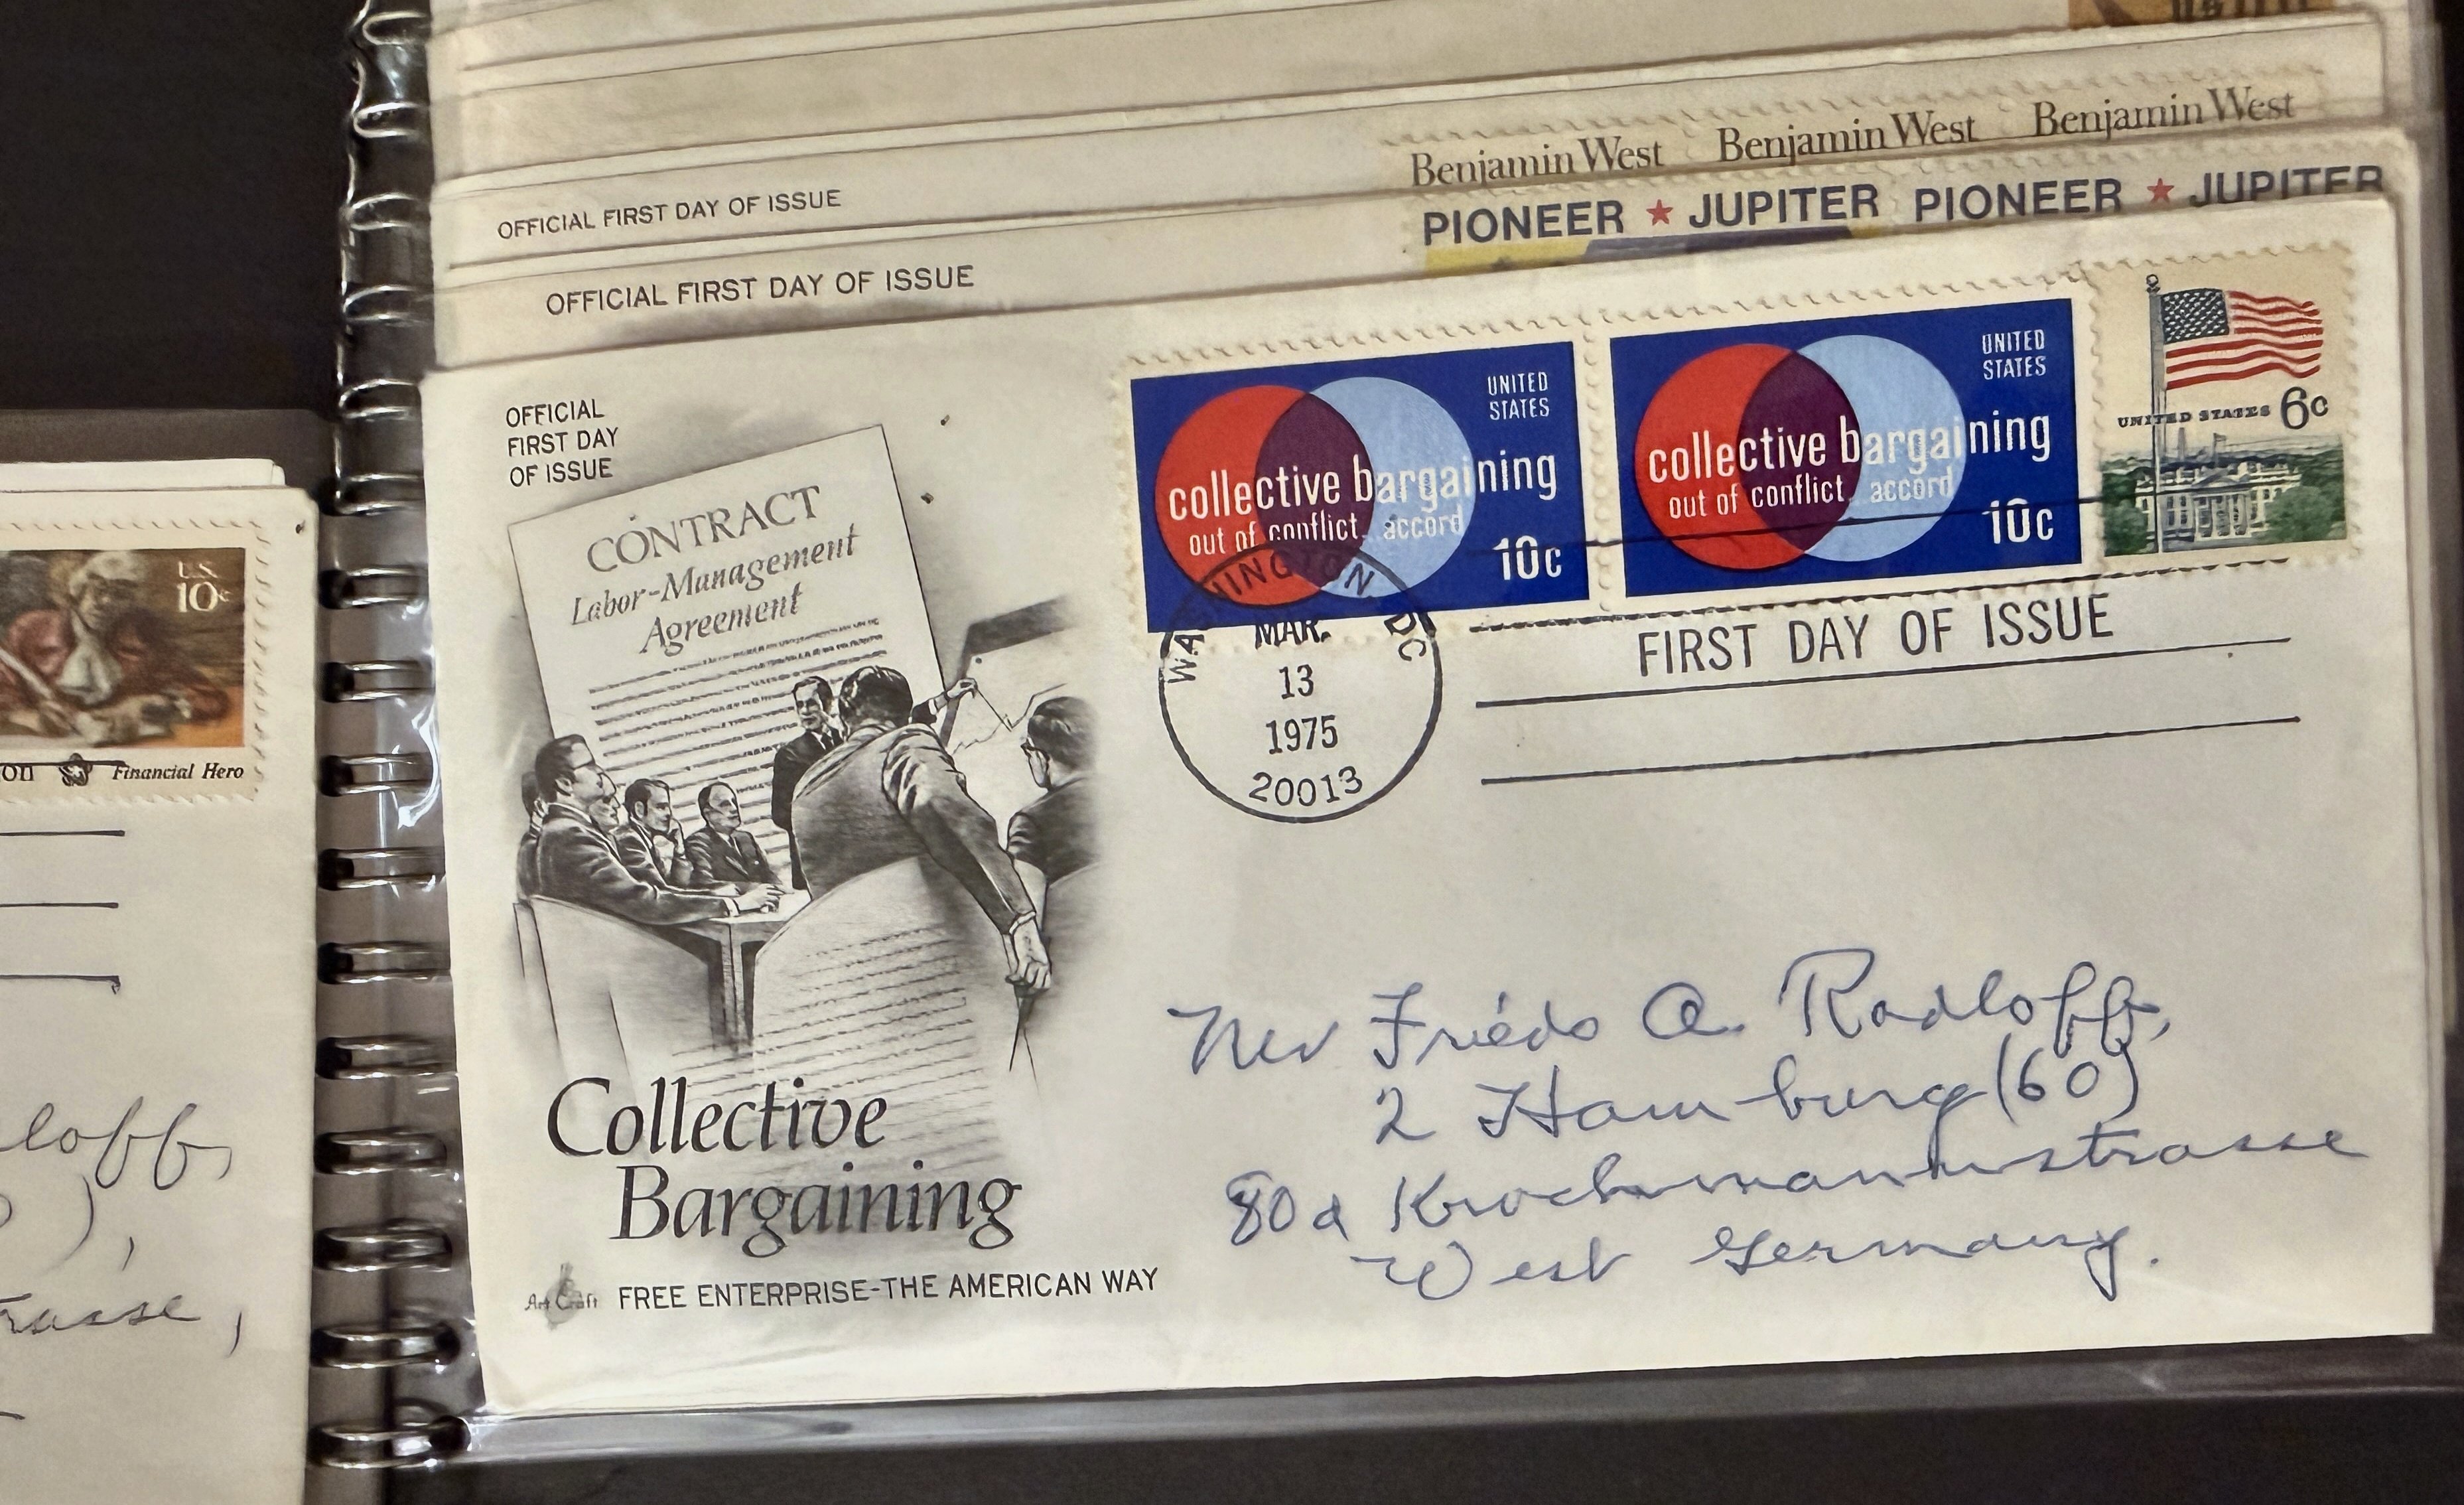 Benjamin West Benjamin West Benjamin West
OFFICIAL FIRST DAY OF ISSUE
PIONEER ★ JUPITER PIONEER ★ JUPITER
OFFICIAL FIRST DAY OF ISSUE
OFFICIAL
FIRST DAY
OF ISSUE
CONTRACT
Labor-Management
Agreement
UNITED
STATES
collective bargaining
out of conflict accord
10c
UNITED
STATES
collective bargaining
out of conflict accord
10c
UNITED STATES 6c
WASHINGTON DC
MAR.
13
1975
20013
FIRST DAY OF ISSUE
Collective
Bargaining
Art Craft FREE ENTERPRISE-THE AMERICAN WAY
Friédo A. Radloff,
2 Hamburg (60)
80a
West Germany.
U.S.
10c
on Financial Hero
loff,
),
rasse,